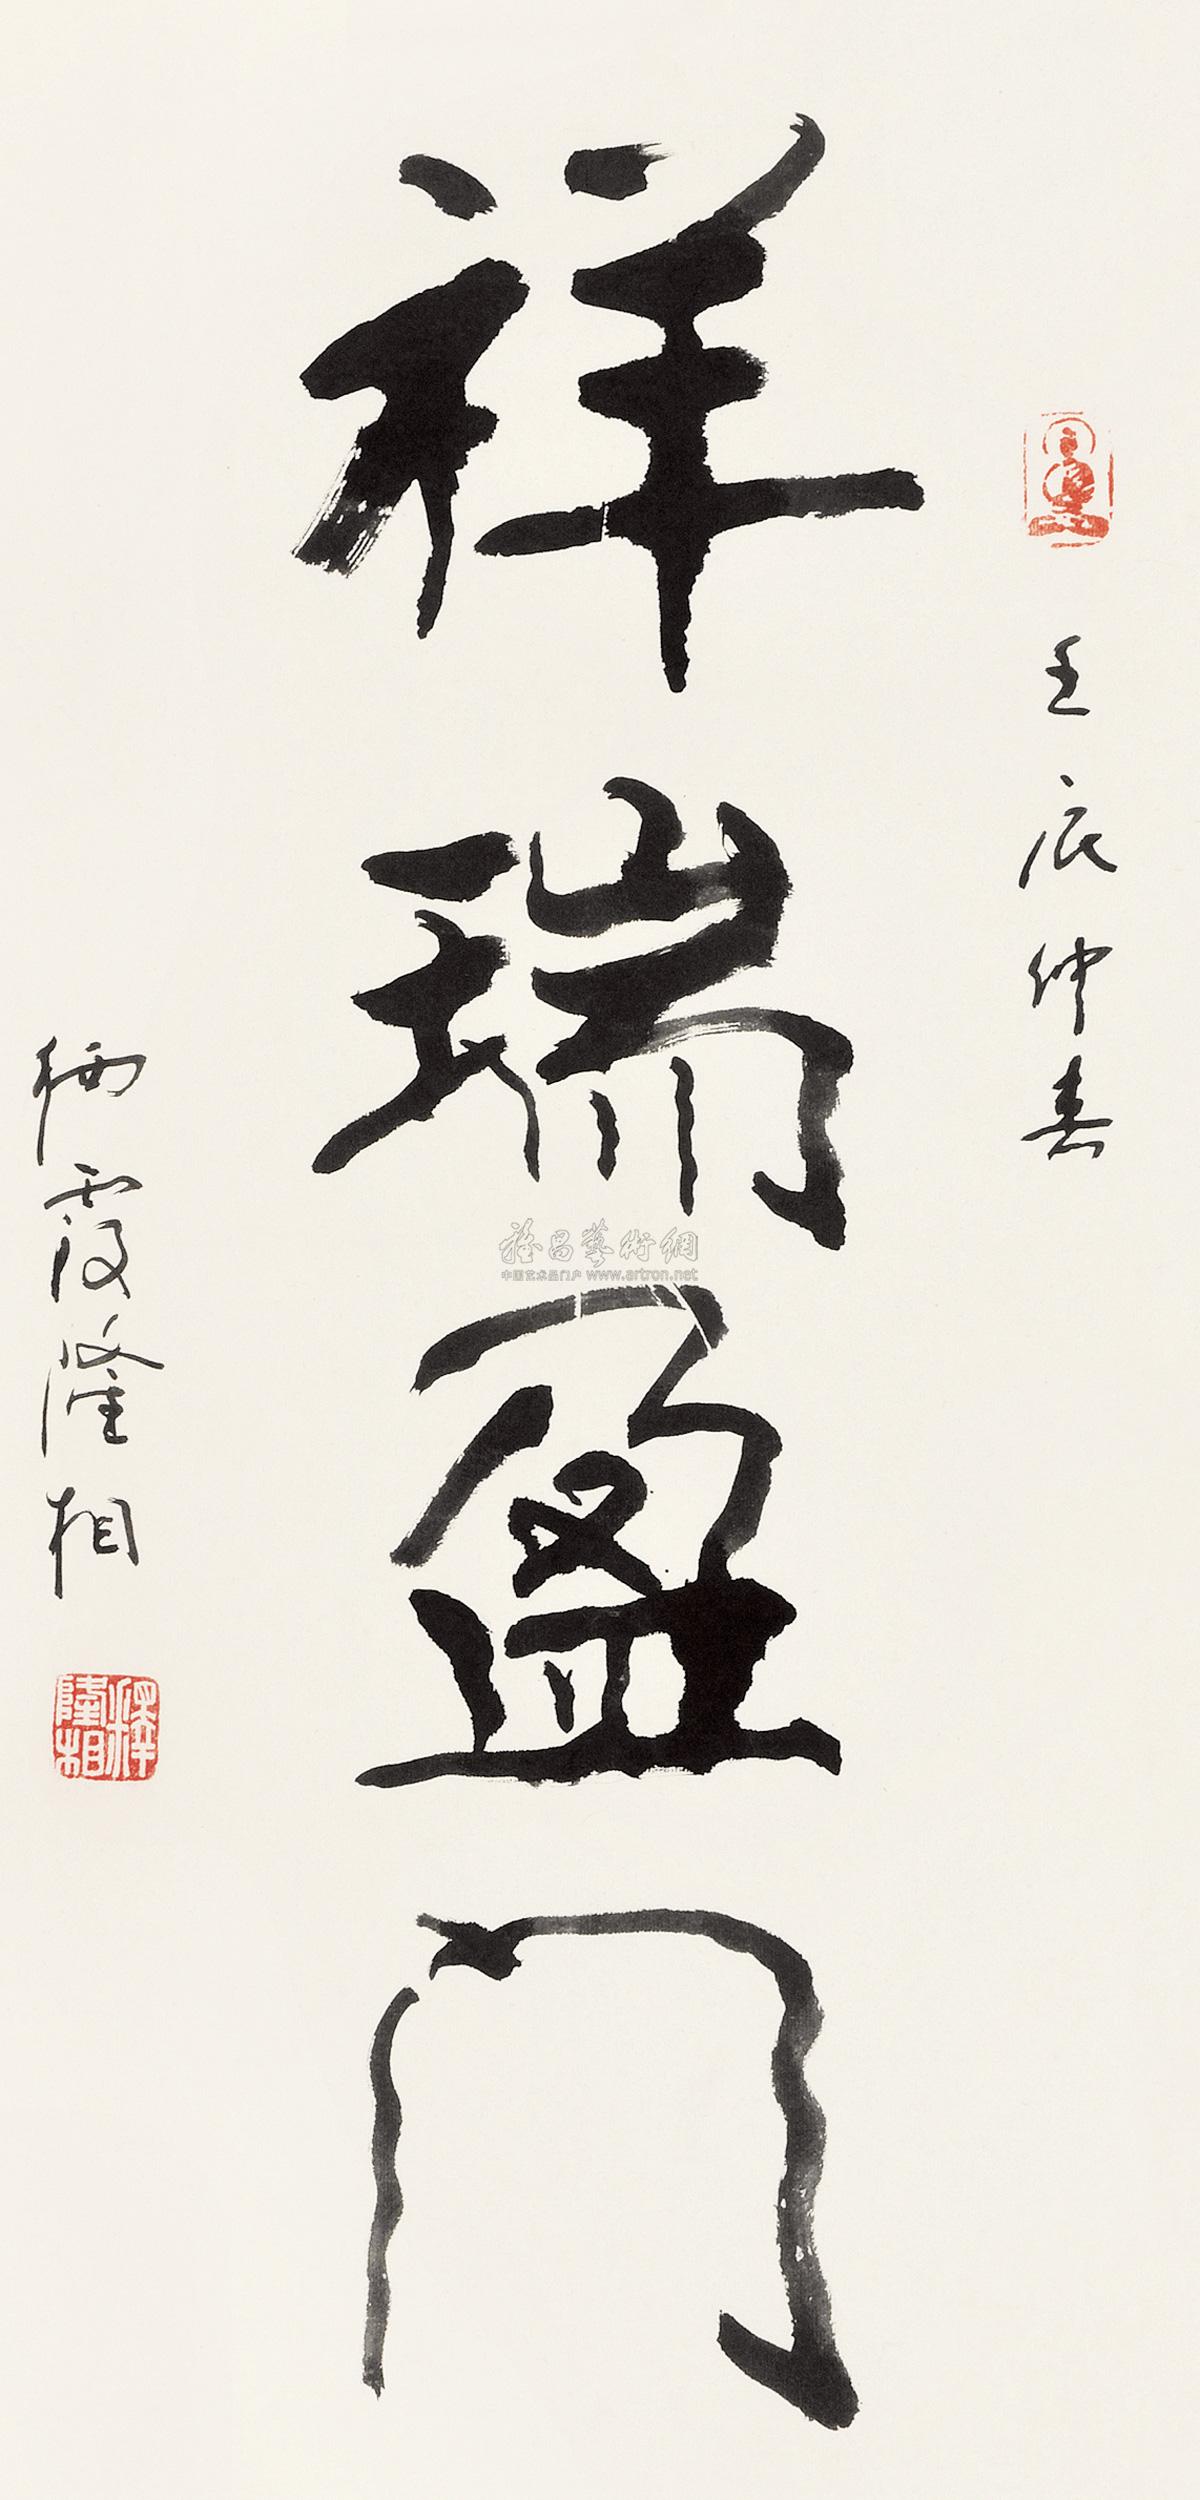 壬辰仲春
祥瑞盈门
栖霞隆相
釋隆相
雅昌藝術網
中国艺术品门户 www.artron.net